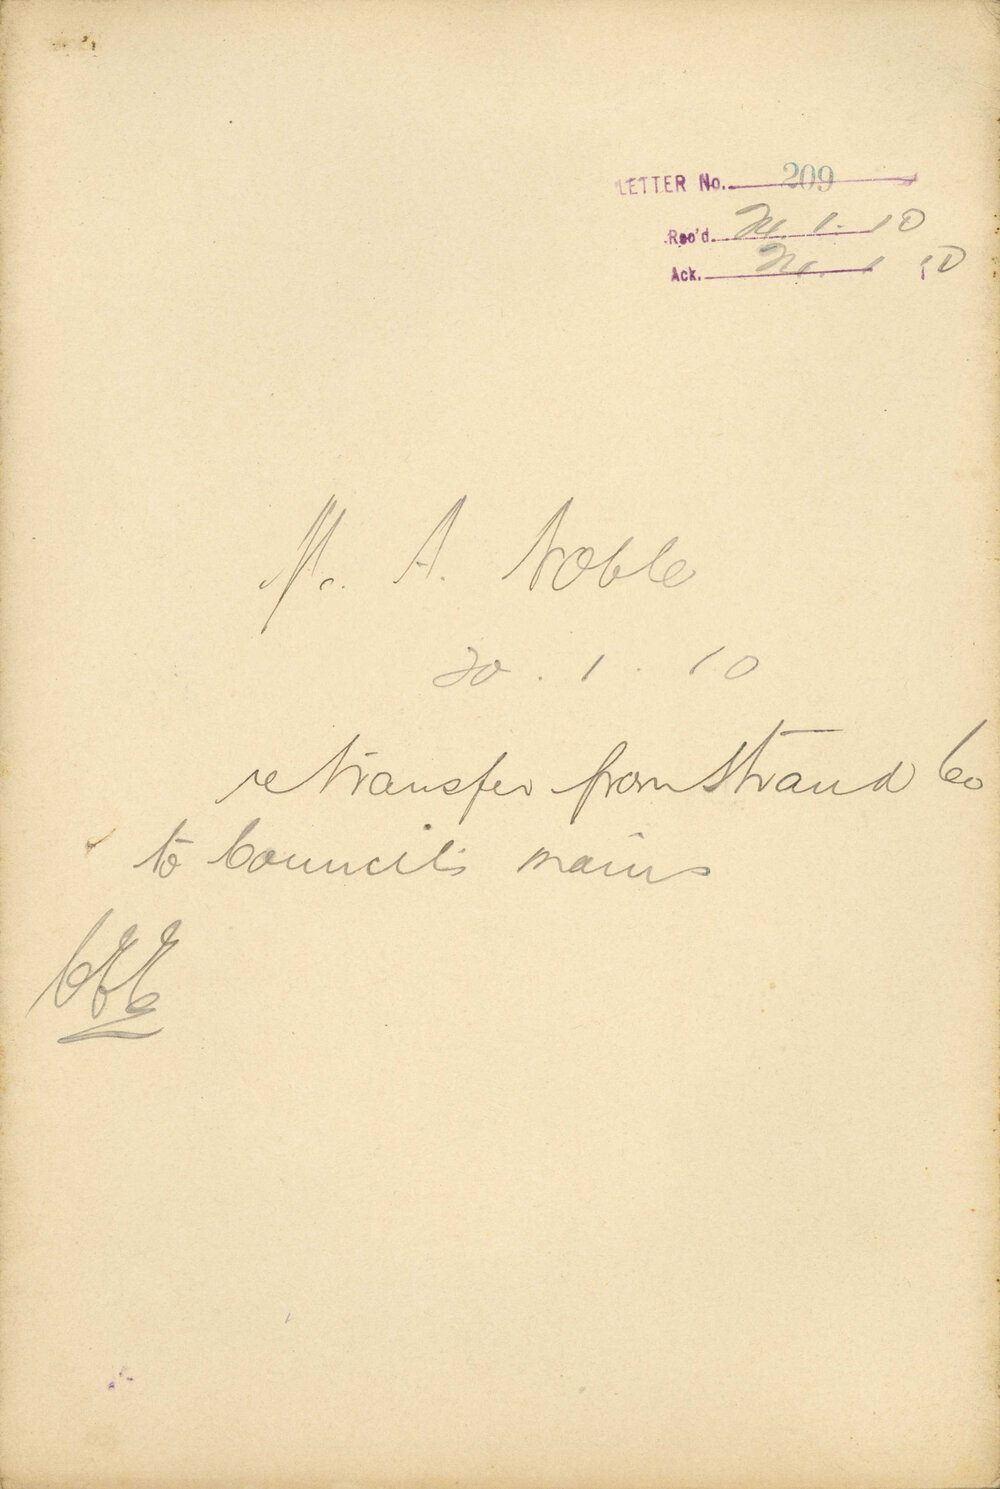 LETTER No. 209
Rec'd. 21. 1. 10
Ack. 21. 1 10
Mr. A. Noble
20. 1. 10
re transfer from Strand Co
to Council's mains